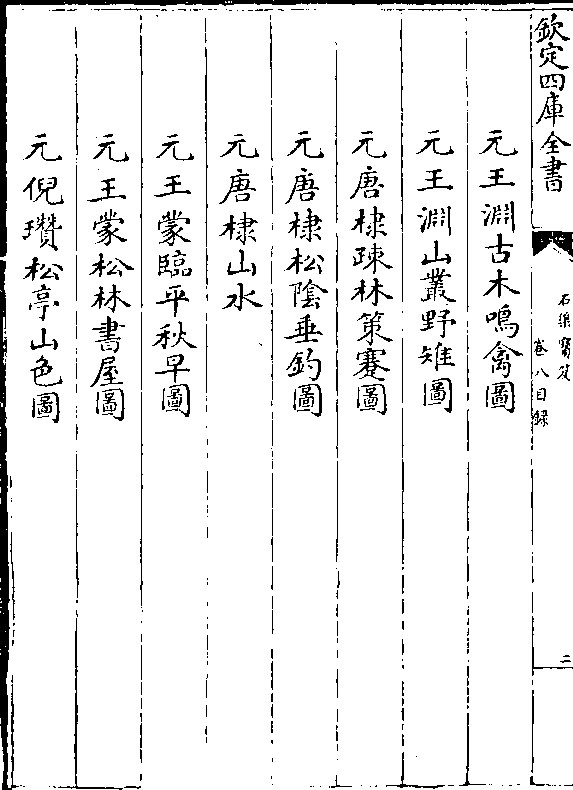 欽定四庫全書
石渠寶笈
卷八目録
二
元王淵古木鳴禽圖
元王淵山叢野雉圖
元唐棣疎林策蹇圖
元唐棣松陰垂釣圖
元唐棣山水
元王蒙臨平秋早圖
元王蒙松林書屋圖
元倪瓚松亭山色圖